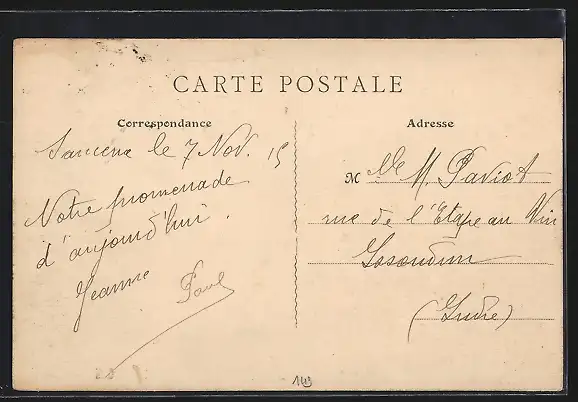 CARTE POSTALE
Correspondance
Sancerre le 7 Nov. 15
Notre promenade
d'aujourd'hui.
Jeanne
Paul
Adresse
M lle M. Paviot
rue de l'Etape au Vin
Issoudun
(Indre)